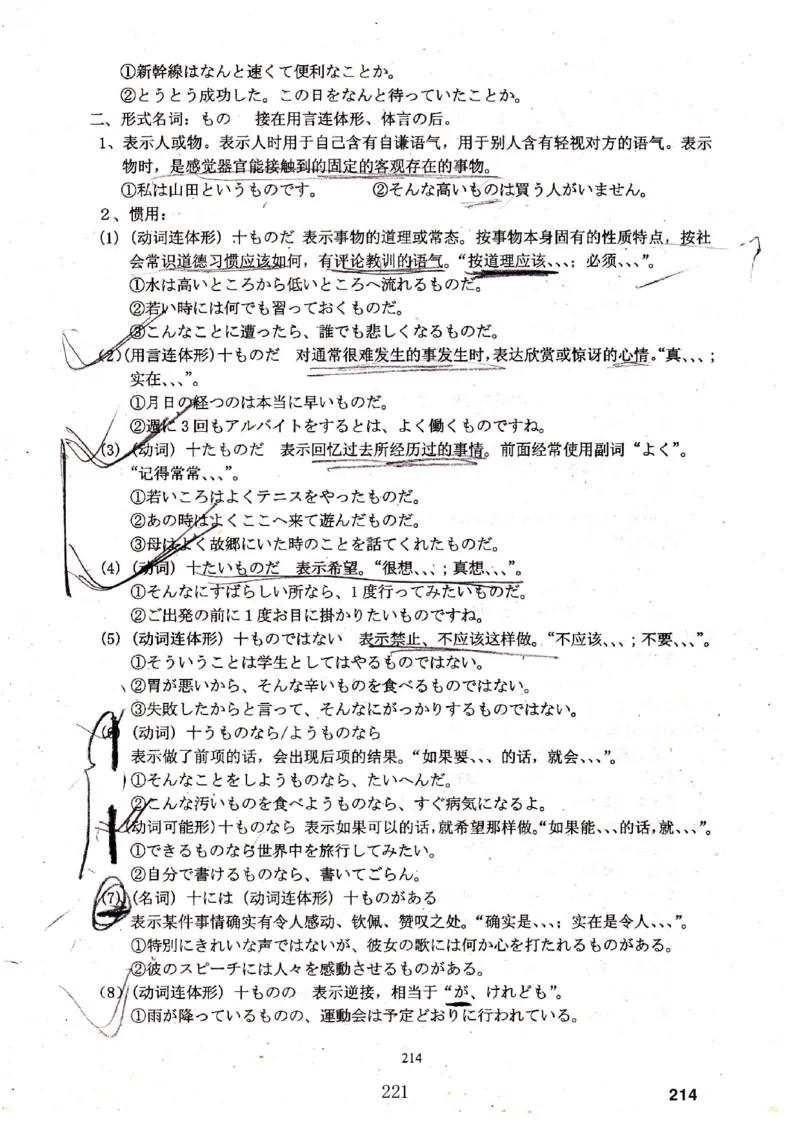 ①新幹線はなんと速くて便利なことか。
②とうとう成功した。この日をなんと待っていたことか。
二、形式名词：もの　接在用言连体形、体言の后。
1、表示人或物。表示人时用于自己含有自谦语气，用于别人含有轻视对方的语气。表示
物时，是感觉器官能接触到的固定的客观存在的事物。
①私は山田というものです。　②そんな高いものは買う人がいません。
２、惯用：
(1)（动词连体形）十ものだ 表示事物的道理或常态。按事物本身固有的性质特点，按社
会常识道德习惯应该如何，有评论教训的语气。“按道理应该、、、；必须、、、”。
①水は高いところから低いところへ流れるものだ。
②若い時には何でも習っておくものだ。
③こんなことに遭ったら、誰でも悲しくなるものだ。
(2)(用言连体形)十ものだ　对通常很难发生的事发生时，表达欣赏或惊讶的心情。“真、、、；
实在、、、”。
①月日の経つのは本当に早いものだ。
②週に３回もアルバイトをするとは、よく働くものですね。
(3)（动词）十たものだ　表示回忆过去所经历过的事情。前面经常使用副词“よく”。
“记得常常、、、”。
①若いころはよくテニスをやったものだ。
②あの時はよくここへ来て遊んだものだ。
③母はよく故郷にいた時のことを話てくれたものだ。
(4)（动词）十たいものだ　表示希望。“很想、、、；真想、、、”。
①そんなにすばらしい所なら、１度行ってみたいものだ。
②ご出発の前に１度お目に掛かりたいものですね。
(5)（动词连体形）十ものではない　表示禁止、不应该这样做。“不应该、、、；不要、、、”。
①そういうことは学生としてはやるものではない。
②胃が悪いから、そんな辛いものを食べるものではない。
③失敗したからと言って、そんなにがっかりするものではない。
(6)（动词）十うものなら/ようものなら
表示做了前项的话，会出现后项的结果。“如果要、、、的话，就会、、、”。
①そんなことをしようものなら、たいへんだ。
②こんな汚いものを食べようものなら、すぐ病気になるよ。
(动词可能形)十ものなら 表示如果可以的话，就希望那样做。“如果能、、、的话，就、、、”。
①できるものなら世界中を旅行してみたい。
②自分で書けるものなら、書いてごらん。
(7)（名词）十には（动词连体形）十ものがある
表示某件事情确实有令人感动、钦佩、赞叹之处。“确实是、、、；实在是令人、、、”。
①特別にきれいな声ではないが、彼女の歌には何か心を打たれるものがある。
②彼のスピーチには人々を感動させるものがある。
(8)（动词连体形）十ものの　表示逆接，相当于“が、けれども”。
①雨が降っているものの、運動会は予定どおりに行われている。
214
221
214